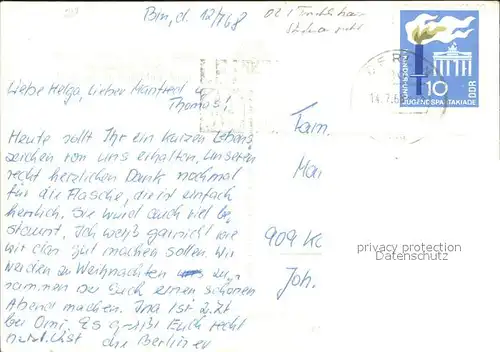 Bln, d. 12/7 68
Liebe Helga, lieber Manfred u.
Thomas!
Heute sollt Ihr ein kurzes Lebens
zeichen von uns erhalten. Unseren
recht herzlichen Dank nochmal
für die Flasche, die ist einfach
herrlich. Sie wird auch viel be
staunt. Ich weiß garnicht wie
wir das gut machen sollen. Wir
werden zu Weihnachten uns zu
sammen zu Euch einen schönen
Abend machen. Ina ist z.Zt
bei Omi. Es grüßt Euch recht
herzlichst die Berliner
Fam.
Ma
909 K
Joh.
10
DDR
KINDER-UND
JUGENDSPARTAKIADE
BER
14.7.6
privacy protection
Datenschutz